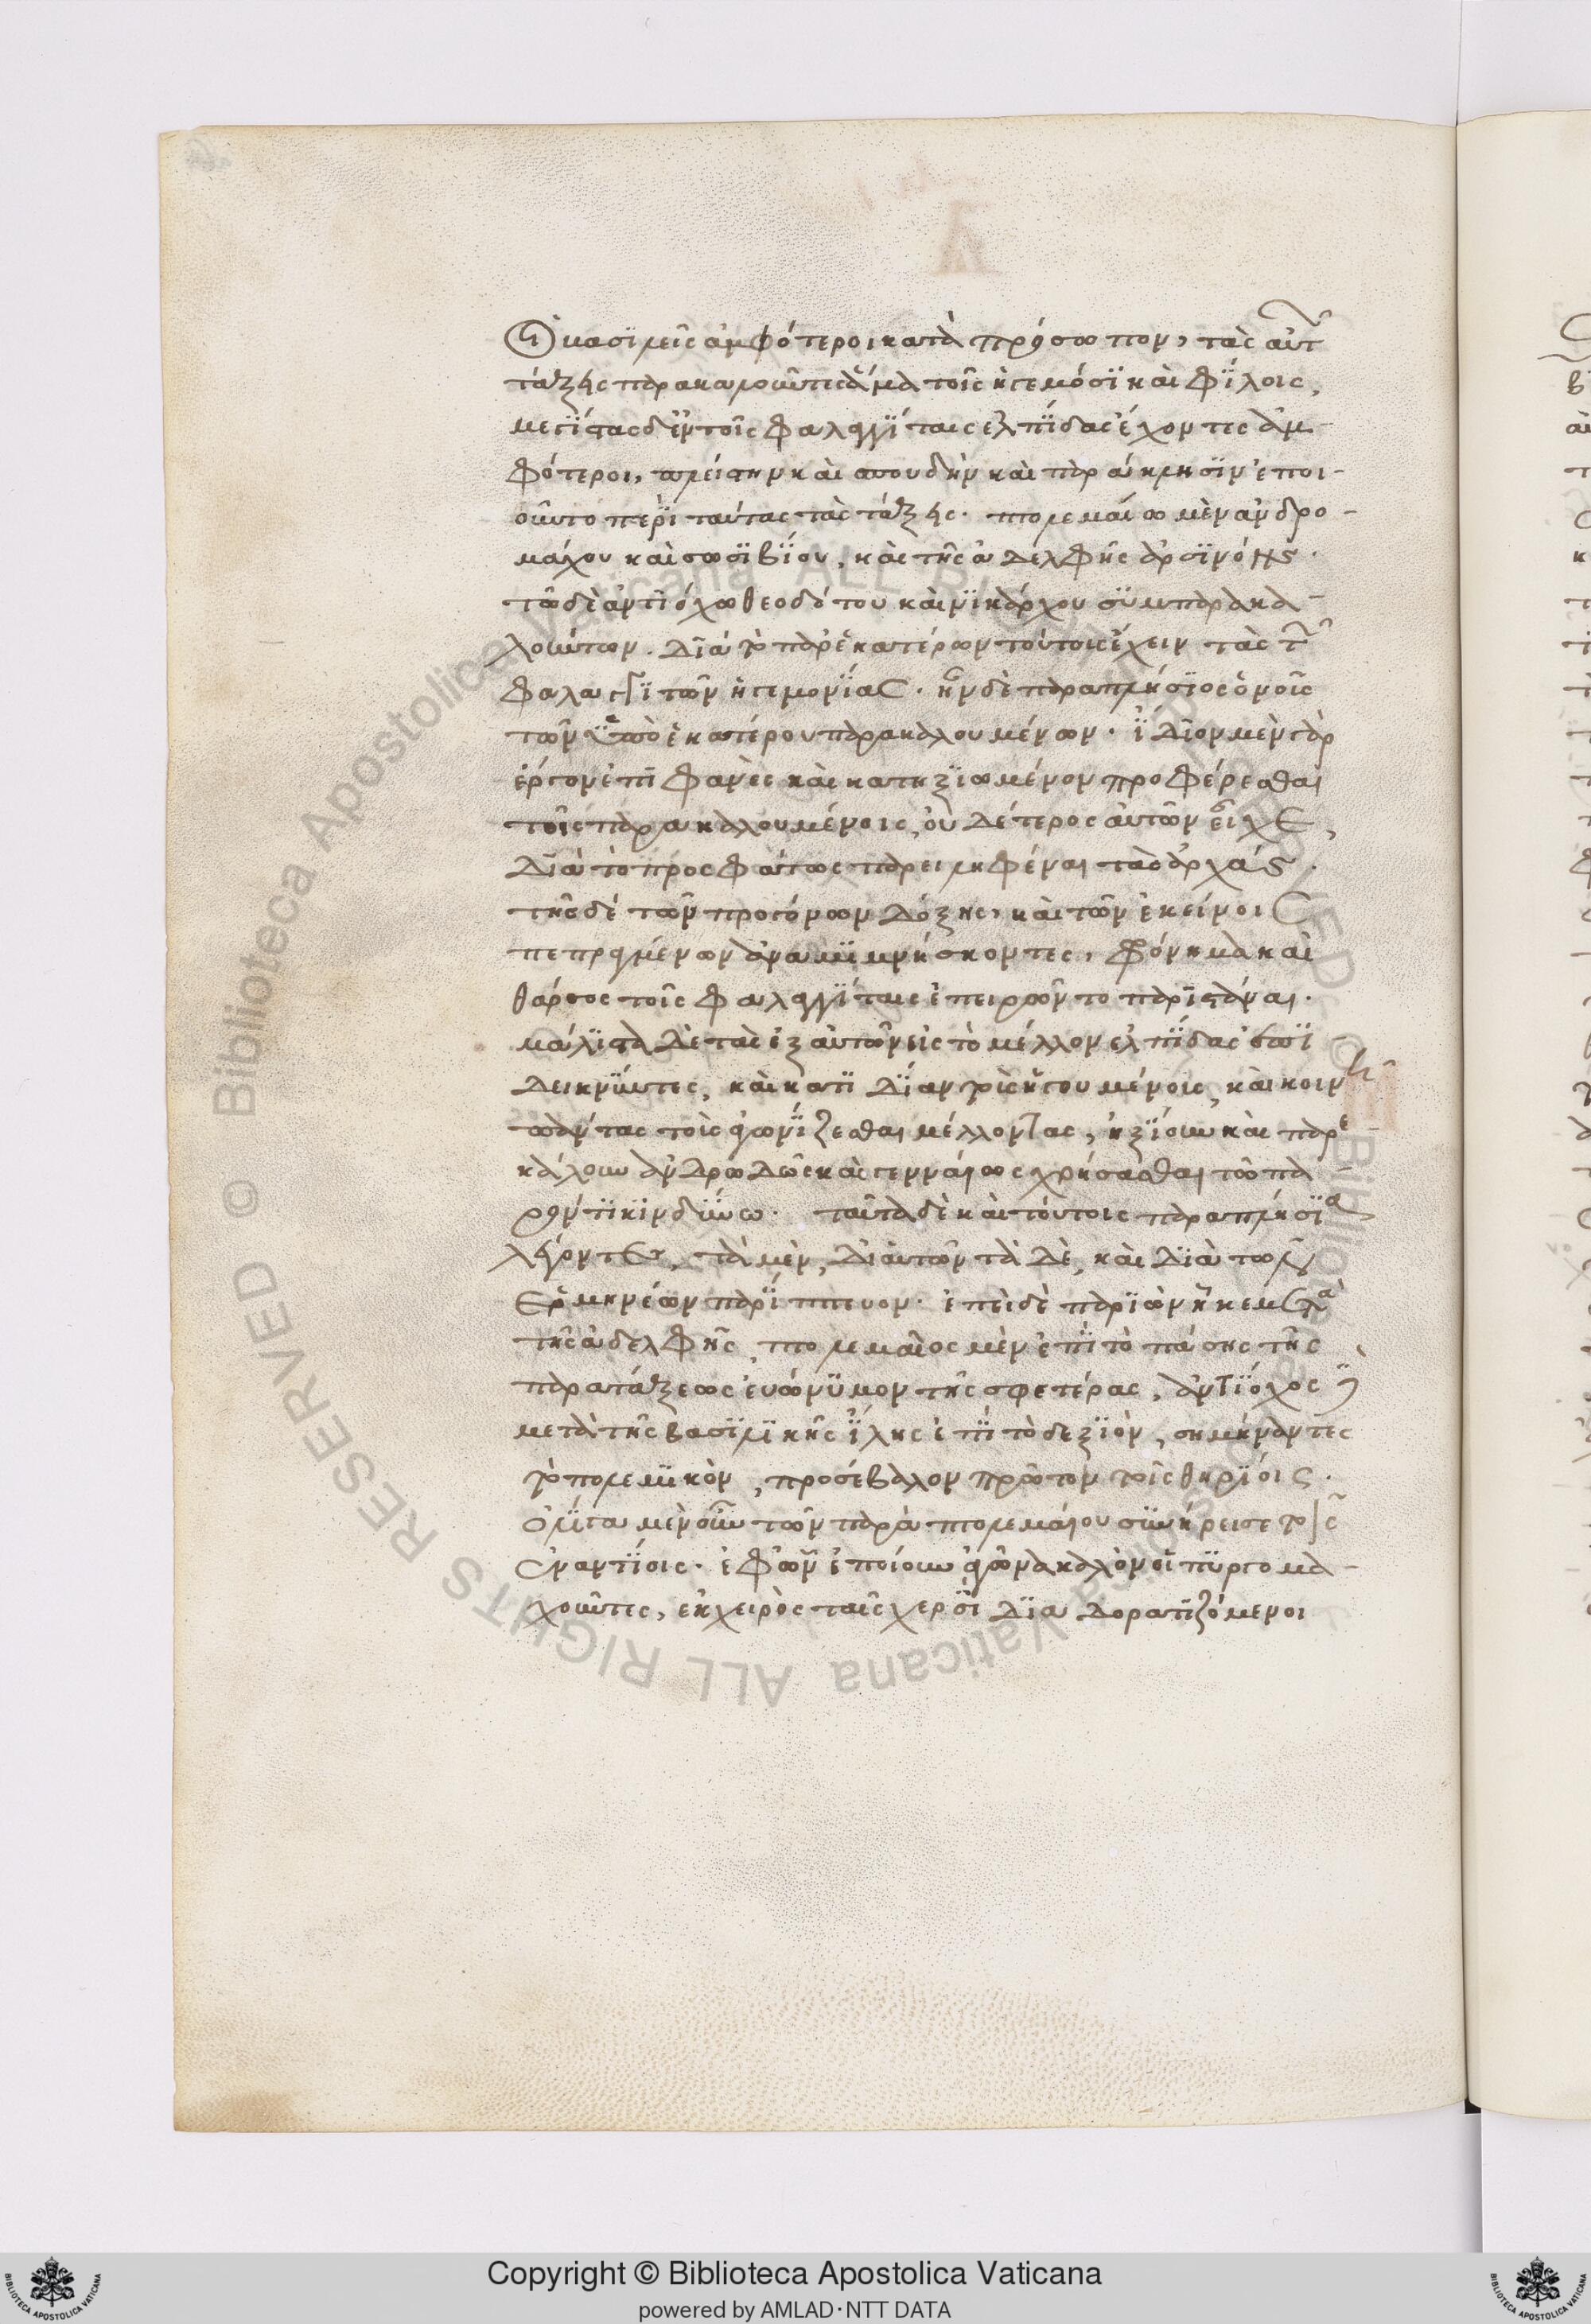 οἱ βασϊλεῖς ἀμφότεροι κατὰ πρόσωπον, τὰς αὑτῶν
τάξεις παρακαλοῦντες ἅμα τοῖς ἡγεμόσϊ καὶ φΐλοις,
μεγΐστας δ' ἐν τοῖς φαλαγγΐταις ἐλπΐδας ἔχοντες ἀμ-
φότεροι, πλείστην καὶ σπουδὴν καὶ παράκλησϊν ἐποι-
οῦντο περῒ ταύτας τὰς τάξεις. πτολεμαίω μὲν ἀνδρο-
μάχου καὶ σωσϊβΐου, καὶ τῆς ἀδελφῆς ἀρσϊνόης.
τῶ δὲ ἀντϊόχω θεοδότου καὶ νϊκάρχου συμπαρακα-
λούντων. διὰ τὸ παρ' ἑκατέρων τούτοις ἔχειν τὰς τῶν
φαλαγγϊτῶν ἡγεμονΐας. ἦν δὲ παραπλήσϊος ὁ νοῦς
τῶν ὑπὸ ἑκατέρου παρακαλουμένων. ΐδϊον μὲν γὰρ
ἔργον ἐπϊφανὲς καὶ κατηξϊωμένον προφέρεσθαι
τοῖς παρακαλουμένοις, οὐδέτερος αὐτῶν εἶχε,
διὰ τὸ προσφάτως παρειληφέναι τὰς ἀρχάς.
τῆς δὲ τῶν προγόνων δόξης, καὶ τῶν ἐκείνοις
πεπραγμένων ἀναμϊμνήσκοντες, φρόνημα καὶ
θάρσος τοῖς φαλαγγΐταις ἐπειρῶντο παρϊστάναι.
μάλϊστα δὲ τὰς ἐξ αὐτῶν εἰς τὸ μέλλον ἐλπΐδας ἐπϊ-
δεικνύντες, καὶ κατ' ϊδΐαν τοὺς ἡγουμένους, καὶ κοινῆ
πάντας τοὺς ἀγωνΐζεσθαι μέλλοντας, ἠξΐουν καὶ παρε-
κάλουν ἀνδρωδῶς καὶ γενναίως χρήσασθαι τῶ πα-
ρόντϊ κϊνδύνω. ταῦτα δὲ καὶ τούτοις παραπλήσϊα
λέγοντες, τὰ μὲν, δι' αὑτῶν τὰ δὲ, καὶ διὰ τῶν
ἑρμηνέων παρΐππευον. ἐπεὶ δὲ παρϊὼν ἧκε μετὰ
τῆς ἀδελφῆς, πτολεμαῖος μὲν ἐπῒ τὸ πάσης τῆς
παρατάξεως εὐώνυμον τῆς σφετέρας, ἀντΐοχος δὲ
μετὰ τῆς βασϊλϊκῆς ΐλης ἐπῒ τὸ δεξϊὸν, σημήναντες
τὸ πολεμϊκὸν, προσέβαλον πρῶτον τοῖς θηρΐοις.
ὀλΐγα μὲν οὖν τῶν παρὰ πτολεμαίου συνήρεισε τοῖς
ἐναντΐοις. ἐφ' ὧν ἐποίουν ἀγῶνα καλὸν οἱ πυργομα-
χοῦντες, ἐκ χειρὸς ταῖς χερσῒ δϊαδορατϊζόμενοι